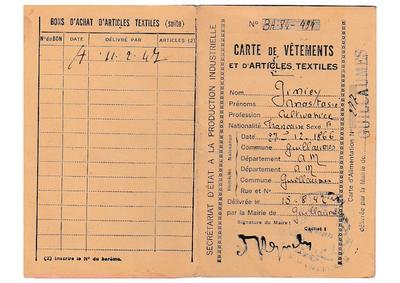 BONS D'ACHAT D'ARTICLES TEXTILES (suite)
N° du BON DÉLIVRÉ PAR ARTICLES (2)
11.2.47
(2) Inscrire le N° du barème.
SECRÉTARIAT D'ÉTAT A LA PRODUCTION INDUSTRIELLE
N° BA-84-494
CARTE DE VÊTEMENTS
ET D'ARTICLES TEXTILES
Nom,
Prénoms Anastasie
Profession Cultivatrice
Nationalité Française Sexe F
Naissance
Date 27-12-1866
Commune Guillaumes
Département AM
Domicile
Département AM
Commune Guillaumes
Rue et N°
Délivrée le 15-8-42
par la Mairie de Guillaumes
Signature du Maire: Cachet:
Carte d'Alimentation N°
délivrée par la Mairie de
GUILLAUMES